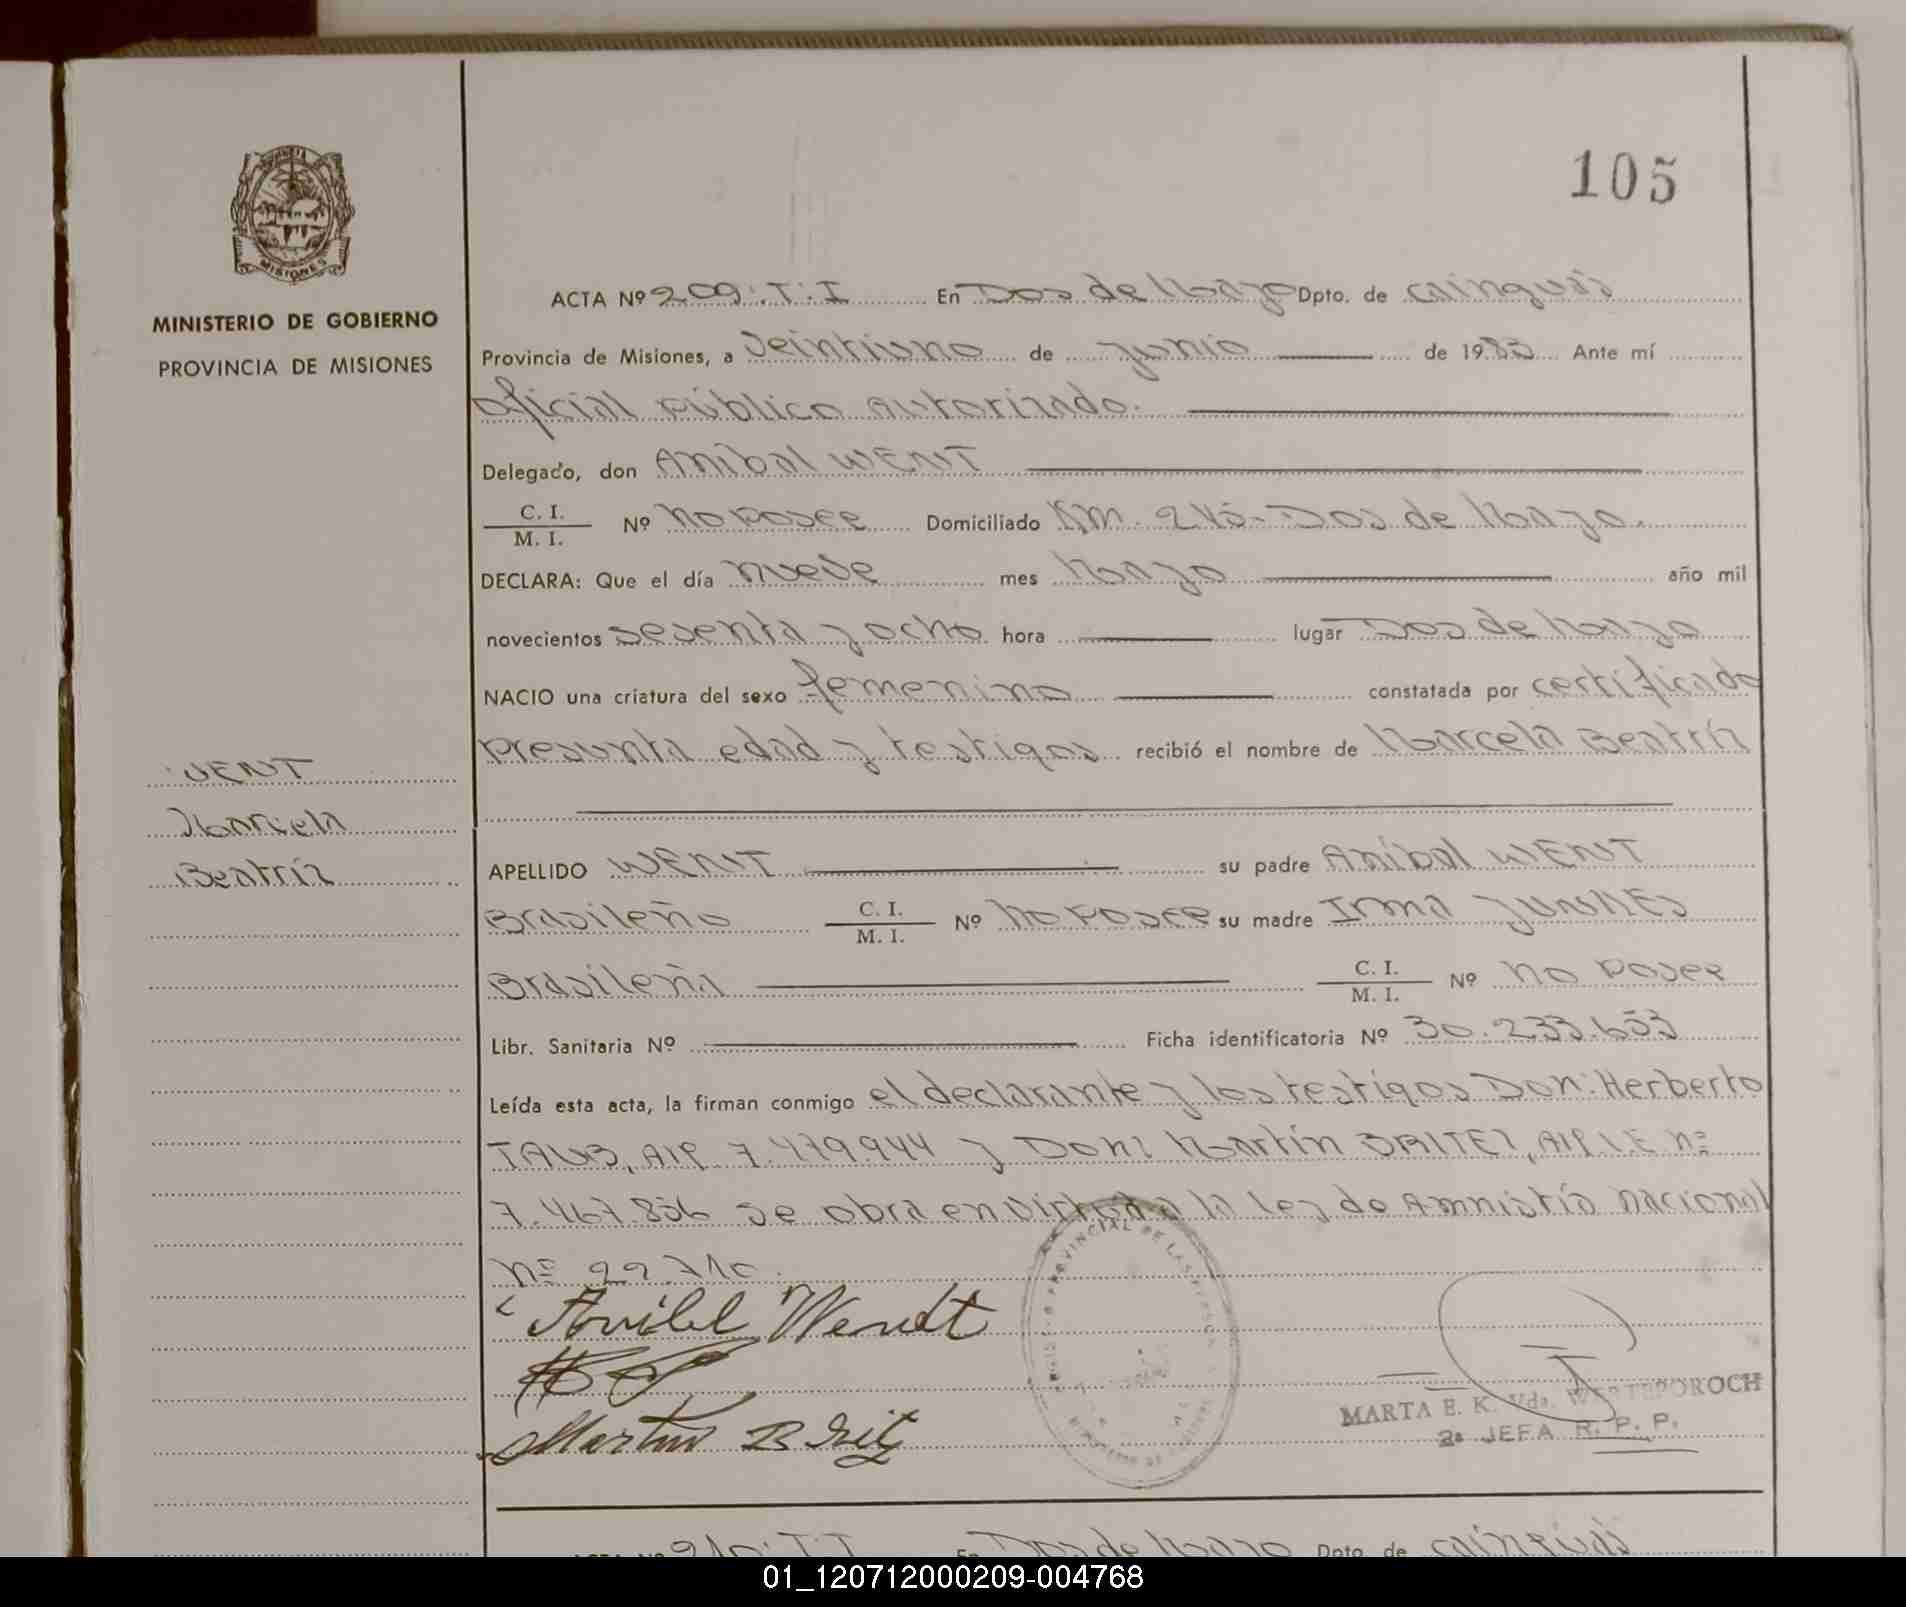 105
MISIONES
MINISTERIO DE GOBIERNO
PROVINCIA DE MISIONES
WENT
Marcela
Beatríz
ACTA Nº 209·T·I En Dos de Mayo Dpto. de Cainguás
Provincia de Misiones, a Veintiuno de Junio de 1983 Ante mí
Oficial Público Autorizado.
Delegado, don Aníbal WENT
C. I. / M. I. Nº No Posee Domiciliado KM. 245-Dos de Mayo.
DECLARA: Que el día nueve mes Mayo año mil
novecientos sesenta y ocho hora lugar Dos de Mayo
NACIO una criatura del sexo femenino constatada por certificado
presunta edad y testigos recibió el nombre de Marcela Beatríz
APELLIDO WENT su padre Aníbal WENT
Brasileño C. I. / M. I. Nº No Posee su madre Irma
Brasileña C. I. / M. I. Nº No Posee
Libr. Sanitaria Nº Ficha identificatoria Nº 30.233.653
Leída esta acta, la firman conmigo el declarante y los testigos Don: Herberto
TAUB, MIP. 7.479.944 y Don: Martín BRITEZ, MIP. I.E Nº
7.467.856 se obra en virtud a la Ley de Amnistía Nacional
Nº 22.710.
Anibal Wendt
Martin Britez
MARTA E. K. Vda. WASTEPOROCH
2a JEFA R. P. P.
ACTA Nº 210·T·I En Dos de Mayo Dpto. de Cainguás
01_120712000209-004768